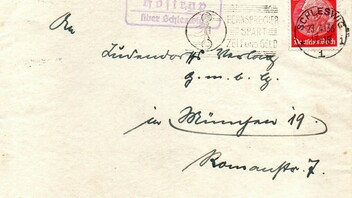 Hollrup
über Schleswig
FERNSPRECHER
SPART
ZEIT und GELD
SCHLESWIG
1
Deutsches Reich
An
Ludendorffs Verlag
G.m.b.H.
in München 19.
Romanstr. 7.